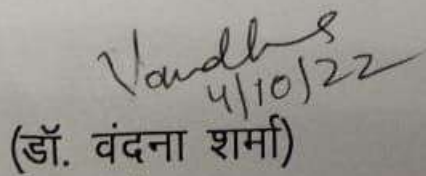 Vandhs
4/10/22
(डॉ. वंदना शर्मा)